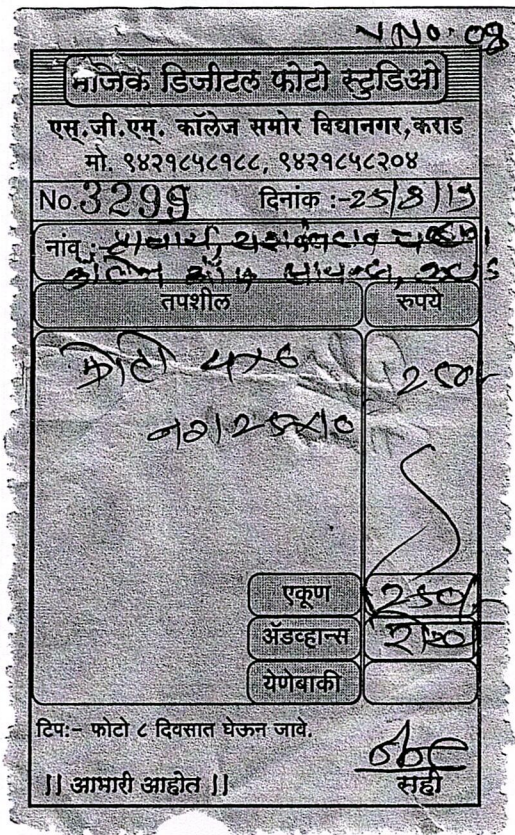 V No. 08
मॅजिक डिजीटल फोटो स्टुडिओ
एस.जी.एम. कॉलेज समोर विद्यानगर, कराड
मो. ९४२१८५८१८८, ९४२१८५८२०४
No. 3299 दिनांक :-
नांव :- प्राचार्य, यशवंतराव चव्हाण
कॉलेज ऑफ सायन्स, कराड
तपशील रुपये
फोटो 4x6
एकूण 250/-
ॲडव्हान्स
येणेबाकी
टिप:- फोटो ८ दिवसात घेऊन जावे.
|| आभारी आहोत || सही